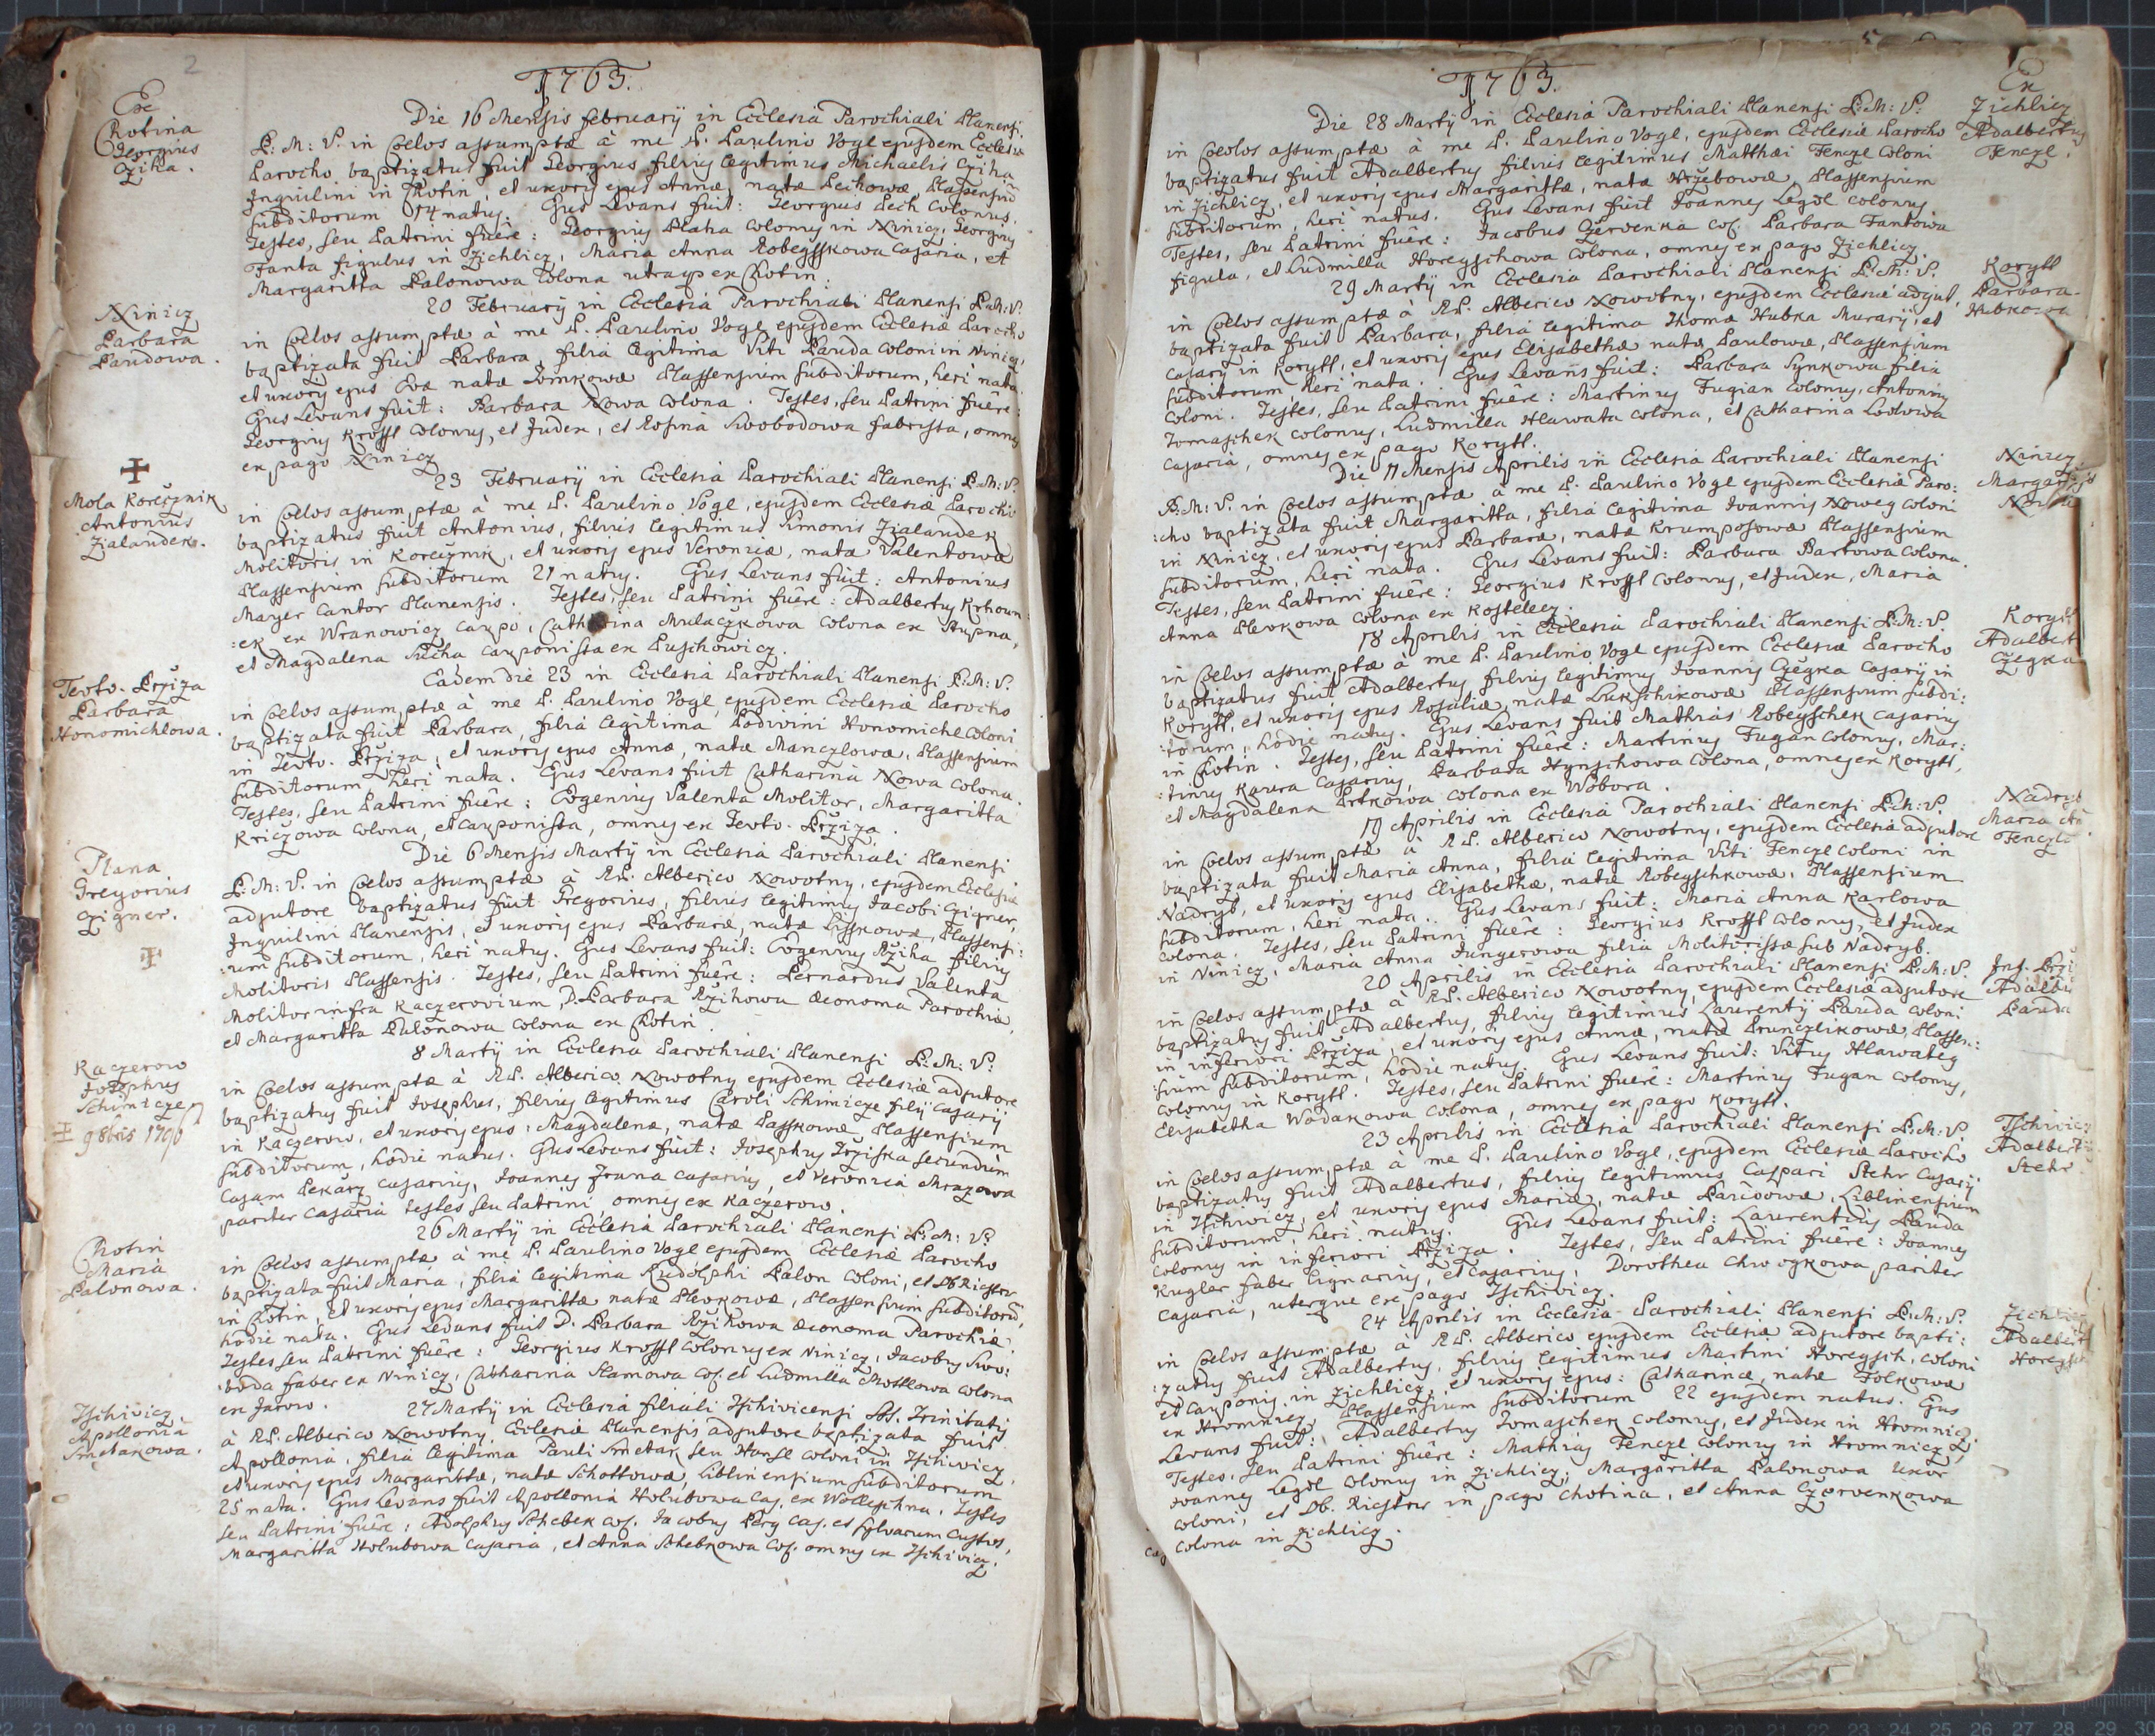 2
1763.
Ex
Chotina
Georgius
Cziha.
Die 16 Mensis february in Ecclesia Parochiali Planensi
B: M: V. in Coelos assumptæ à me P. Paulino Vogl ejusdem Ecclesiæ
Parocho baptizatus fuit Georgius filius legitimus Michaelis Cziha
Inquilini in Chotin et uxoris ejus Annæ, natæ Pechowæ, Plassensiū
subditorum 14 natus. Eius Levans fuit: Georgius Pech Colonus.
Testes, seu Patrini fuêre: Georgius Blaha Colonus in Ninicz, Georgius
Fanta figulus in Zichlicz, Maria Anna Robeysskowa Casaria, et
Margaritta Palonowa Colona utraqз ex Chotin.
Ninicz
Barbara
Baudowa.
20 February in Ecclesia Parochiali Planensi B:M:V.
in Coelos assumptæ à me P. Paulino Vogl ejusdem Ecclesiæ Parocho
baptizata fuit Barbara, filia legitima Viti Bauda Coloni in Ninicz,
et uxoris ejus Evæ natæ Tomkowæ Plassensium subditorum, heri nata.
Eius Levans fuit: Barbara Nowa Colona. Testes, seu Patrini fuêre:
Georgius Krossl Colonus, et Judex, et Rosina Swobodowa fabrissa, omnes
ex pago Ninicz
Mola Korecznik
Antonius
Zialaudek.
23 February in Ecclesia Parochiali Planensi B:M:V.
in Coelos assumptæ à me P. Paulino Vogl, ejusdem Ecclesiæ Parocho
baptizatus fuit Antonius, filius legitimus Simonis Zialaudek
Molitoris in Korecznik, et uxoris ejus Veroniæ, natæ Valentowæ
Plassensium subditorum 21 natus. Eius Levans fuit: Antonius
Mayer Cantor Planensis. Testes, seu Patrini fuêre: Adalbertus Krhoun:
:ek ex Wranowicz caupo, Catharina Mulaczkowa Colona ex Hupna,
et Magdalena Sucha cauponissa ex Buschowicz.
Teuto. Brziza
Barbara
Honomichlowa.
Eadem die 23 in Ecclesia Parochiali Planensi B:M:V.
in Coelos assumptæ à me P. Paulino Vogl, ejusdem Ecclesiæ Parocho
baptizata fuit Barbara, filia legitima Podivini Honomichl Coloni
in Teuto. Brziza, et uxoris ejus Annæ, natæ Manczlowæ, Plassensium
subditorum heri nata. Eius Levans fuit Catharina Nowa Colona.
Testes, seu Patrini fuêre: Eugenius Valenta Molitor, Margaritta
Kriczowa Colona, et cauponissa, omnes ex Teuto. Brziza.
Plana
Gregorius
Czigner.
Die 6 Mensis Marty in Ecclesia Parochiali Planensi
B: M: V. in Coelos assumptæ à R.P. Alberico Nowotny, ejusdem Ecclesiæ
adjutore baptizatus fuit Gregorius, filius legitimus Jacobi Czigner,
Inquilini Planensis, et uxoris ejus Barbaræ, natæ Lisskowæ, Plassensi:
:um subditorum, heri natus. Eius Levans fuit: Eugenius Rziha filius
Molitoris Plassensis. Testes, seu Patrini fuêre: Bernardus Valenta
Molitor infra Kaczerovium, D. Barbara Rzihowa œconoma Parochiæ,
et Margaritta Palonowa Colona ex Chotin.
Kaczerow
Josephus
Schimicze
9bris 1790
8 Marty in Ecclesia Parochiali Planensi B: M: V.
in Coelos assumptæ à R.P. Alberico Nowotny ejusdem Ecclesiæ adjutore
baptizatus fuit Josephus, filius legitimus Caroli Schimicze filij Casarij
in Kaczerow, et uxoris ejus: Magdalenæ, natæ Passkowæ Plassensium
subditorum, hodie natus. Eius Levans fuit: Josephus Trziska secundùm
Casam Pekarz casarius, Joannes Frana casarius, et Veronia Mrazowa
pariter Casaria testes seu Patrini, omnes ex Kaczerow.
Chotin
Maria
Palonowa.
26 Marty in Ecclesia Parochiali Planensi B: M: V.
in Coelos assumptæ à me P. Paulino Vogl ejusdem Ecclesiæ Parocho
baptizata fuit Maria, filia legitima Rudolphi Palon Coloni, et Ob Riester
in Chotin, et uxoris ejus Margarittæ natæ Slevkowæ, Plassensium subditorū,
hodie nata. Eius Levans fuit D. Barbara Rzihowa œconoma Parochiæ.
Testes seu Patrini fuêre: Georgius Krossl Colonus ex Ninicz, Jacobus Swo:
:boda faber ex Ninicz, Catharina Slamowa Cas. et Ludmilla Mottlowa Colona
ex Jarow.
Tschiwicz
Apollonia
Smetakowa.
27 Marty in Ecclesia filiali Tschivicensi Ss. Trinitatis
à R.P. Alberico Nowotny Ecclesiæ Planensis adjutore baptizata fuit
Apollonia, filia legitima Pauli Smetak, seu Hansl Coloni in Tschiwicz,
et uxoris ejus Margarittæ, natæ Schottowæ, Liblinensium subditorum
25 nata. Eius Levans fuit Apollonia Holubowa Cas. ex Wolleschna. Testes
seu Patrini fuêre: Adolphus Schebek Cas. Jacobus Bery Cas. et sylvarum Custos,
Margaritta Holubowa Casaria, et Anna Schebkowa Cas. omnes ex Tschiwicz.
1763.
Ex
Zichlicz
Adalbertus
Fenczl.
Die 28 Marty in Ecclesia Parochiali Planensi B: M: V:
in Coelos assumptæ à me P. Paulino Vogl, ejusdem Ecclesiæ Parocho
baptizatus fuit Adalbertus filius legitimus Matthæi Fenczl Coloni
in Zichlicz, et uxoris ejus Margarittæ, natæ Hrzebowæ Plassensium
subditorum, heri natus. Eius Levans fuit Joannes Legdl Colonus
Testes, seu Patrini fuêre: Jacobus Czervenka Cas. Barbara Fantowa
figula, et Ludmilla Horegschowa Colona, omnes ex pago Zichlicz.
Korytt
Barbara
Hubkowa
29 Marty in Ecclesia Parochiali Planensi B:M:V.
in Coelos assumptæ à R.P. Alberico Nowotny, ejusdem Ecclesiæ adjut.
baptizata fuit Barbara, filia legitima Thomæ Hubka Murarij, et
casarij in Korytt, et uxoris ejus Elisabethæ natæ Paulowæ, Plassensium
subditorum, heri nata. Eius Levans fuit: Barbara Synkowa filia
Coloni. Testes, seu Patrini fuêre: Martinus Fugian Colonus, Antonius
Tomaschek Colonus, Ludmilla Hlawata Colona, et Catharina Lodowa
Casaria, omnes ex pago Korytt.
Ninicz
Margaritta
Die 11 Mensis Aprilis in Ecclesia Parochiali Planensi
B:M:V. in Coelos assumptæ à me P. Paulino Vogl ejusdem Ecclesiæ Paro:
:cho baptizata fuit Margaritta, filia legitima Joannis Noweg Coloni
in Ninicz, et uxoris ejus Barbaræ, natæ Krumposowæ Plassensium
subditorum, heri nata. Eius Levans fuit: Barbara Bartowa Colona.
Testes, seu Patrini fuêre: Georgius Krossl Colonus, et Judex, Maria
Anna Slevkowa Colona ex Kostelecz.
Koryt
Adalbert
Czegka
18 Aprilis in Ecclesia Parochiali Planensi B:M:V.
in Coelos assumptæ à me P. Paulino Vogl ejusdem Ecclesiæ Parocho
baptizatus fuit Adalbertus filius legitimus Joannis Czegka Casarij in
Korytt, et uxoris ejus Rosaliæ, natæ Lukschikowæ Plassensium subdi:
:torum, hodie natus. Eius Levans fuit Mathias Robeyschek casarius
in Chotin. Testes, seu Patrini fuêre: Martinus Fugan Colonus, Mar:
:tinus Kaura Casarius, Barbara Hynschowa Colona, omnes ex Korytt,
et Magdalena Brtkowa Colona ex Wobora.
Nadryb
Maria A
Fenczlo
19 Aprilis in Ecclesia Parochiali Planensi B:M:V.
in Coelos assumptæ à R.P. Alberico Nowotny, ejusdem Ecclesiæ adjutore
baptizata fuit Maria Anna, filia legitima Viti Fenczl Coloni in
Nadryb, et uxoris ejus Elisabethæ, natæ Robegschkowæ, Plassensium
subditorum, heri nata. Eius Levans fuit: Maria Anna Karlowa
Colona. Testes, seu Patrini fuêre: Georgius Krossl Colonus, et Judex
in Ninicz, Maria Anna Jungerowa filia Molitorissæ sub Nadryb.
Inf. Brzi
Adalbe
Bauda
20 Aprilis in Ecclesia Parochiali Planensi B:M:V.
in Coelos assumptæ à R.P. Alberico Nowotny, ejusdem Ecclesiæ adjutore
baptizatus fuit Adalbertus, filius legitimus Laurentij Bauda Coloni
in inferiori Brziza, et uxoris ejus Annæ, natæ Brunczlikowæ, Plassen:
:sium subditorum, hodie natus. Eius Levans fuit: Vitus Hlawateg
Colonus in Korytt. Testes, seu Patrini fuêre: Martinus Fugan Colonus,
Elisabetha Wodakowa Colona, omnes ex pago Korytt.
Tschiwicz
Adalbertus
Stehr.
23 Aprilis in Ecclesia Parochiali Planensi B:M:V.
in Coelos assumptæ à me P. Paulino Vogl, ejusdem Ecclesiæ Parocho
baptizatus fuit Adalbertus, filius legitimus Caspari Stehr Casarij
in Tschiwicz, et uxoris ejus Mariæ, natæ Baudowæ, Liblinensium
subditorum, heri natus. Eius Levans fuit: Laurentius Bauda
Colonus in inferiori Brziza. Testes, seu Patrini fuêre: Joannes
Kugler faber lignarius, et Casarius, Dorothea Chwogkowa pariter
Casaria, uterque ex pago Tschiwicz.
Zichlicz
Adalbert
Horegsch
24 Aprilis in Ecclesia Parochiali Planensi B:M:V.
in Coelos assumptæ à R.P. Alberico ejusdem Ecclesiæ adjutore bapti:
:zatus fuit Adalbertus, filius legitimus Martini Horegsch, Coloni
et Cauponis in Zichlicz, et uxoris ejus: Catharinæ, natæ Folkowæ
ex Hromnicz, Plassensium subditorum 22 ejusdem natus. Eius
Levans fuit: Adalbertus Tomaschek Colonus, et Judex in Hromnicz.
Testes, seu Patrini fuêre: Mathias Fenczl Colonus in Hromnicz,
Joannes Legdl Colonus in Zichlicz, Margaritta Palonowa uxor
Coloni, et Ob. Riester in pago Chotina, et Anna Czervenkowa
Colona in Zichlicz.